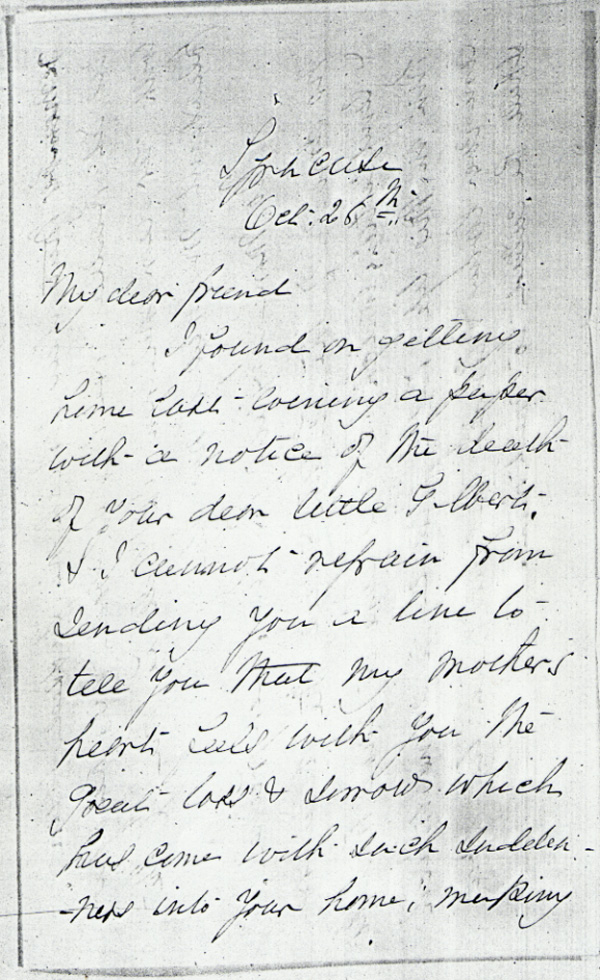 Syracuse
Oct: 26th
My dear friend
I found on getting
home last evening a paper
with a notice of the death
of your dear little Gilbert.
& I cannot refrain from
sending you a line to
tell you that my mother's
heart feels with you the
great loss & sorrow which
has come with such sudden-
ness into your home; making